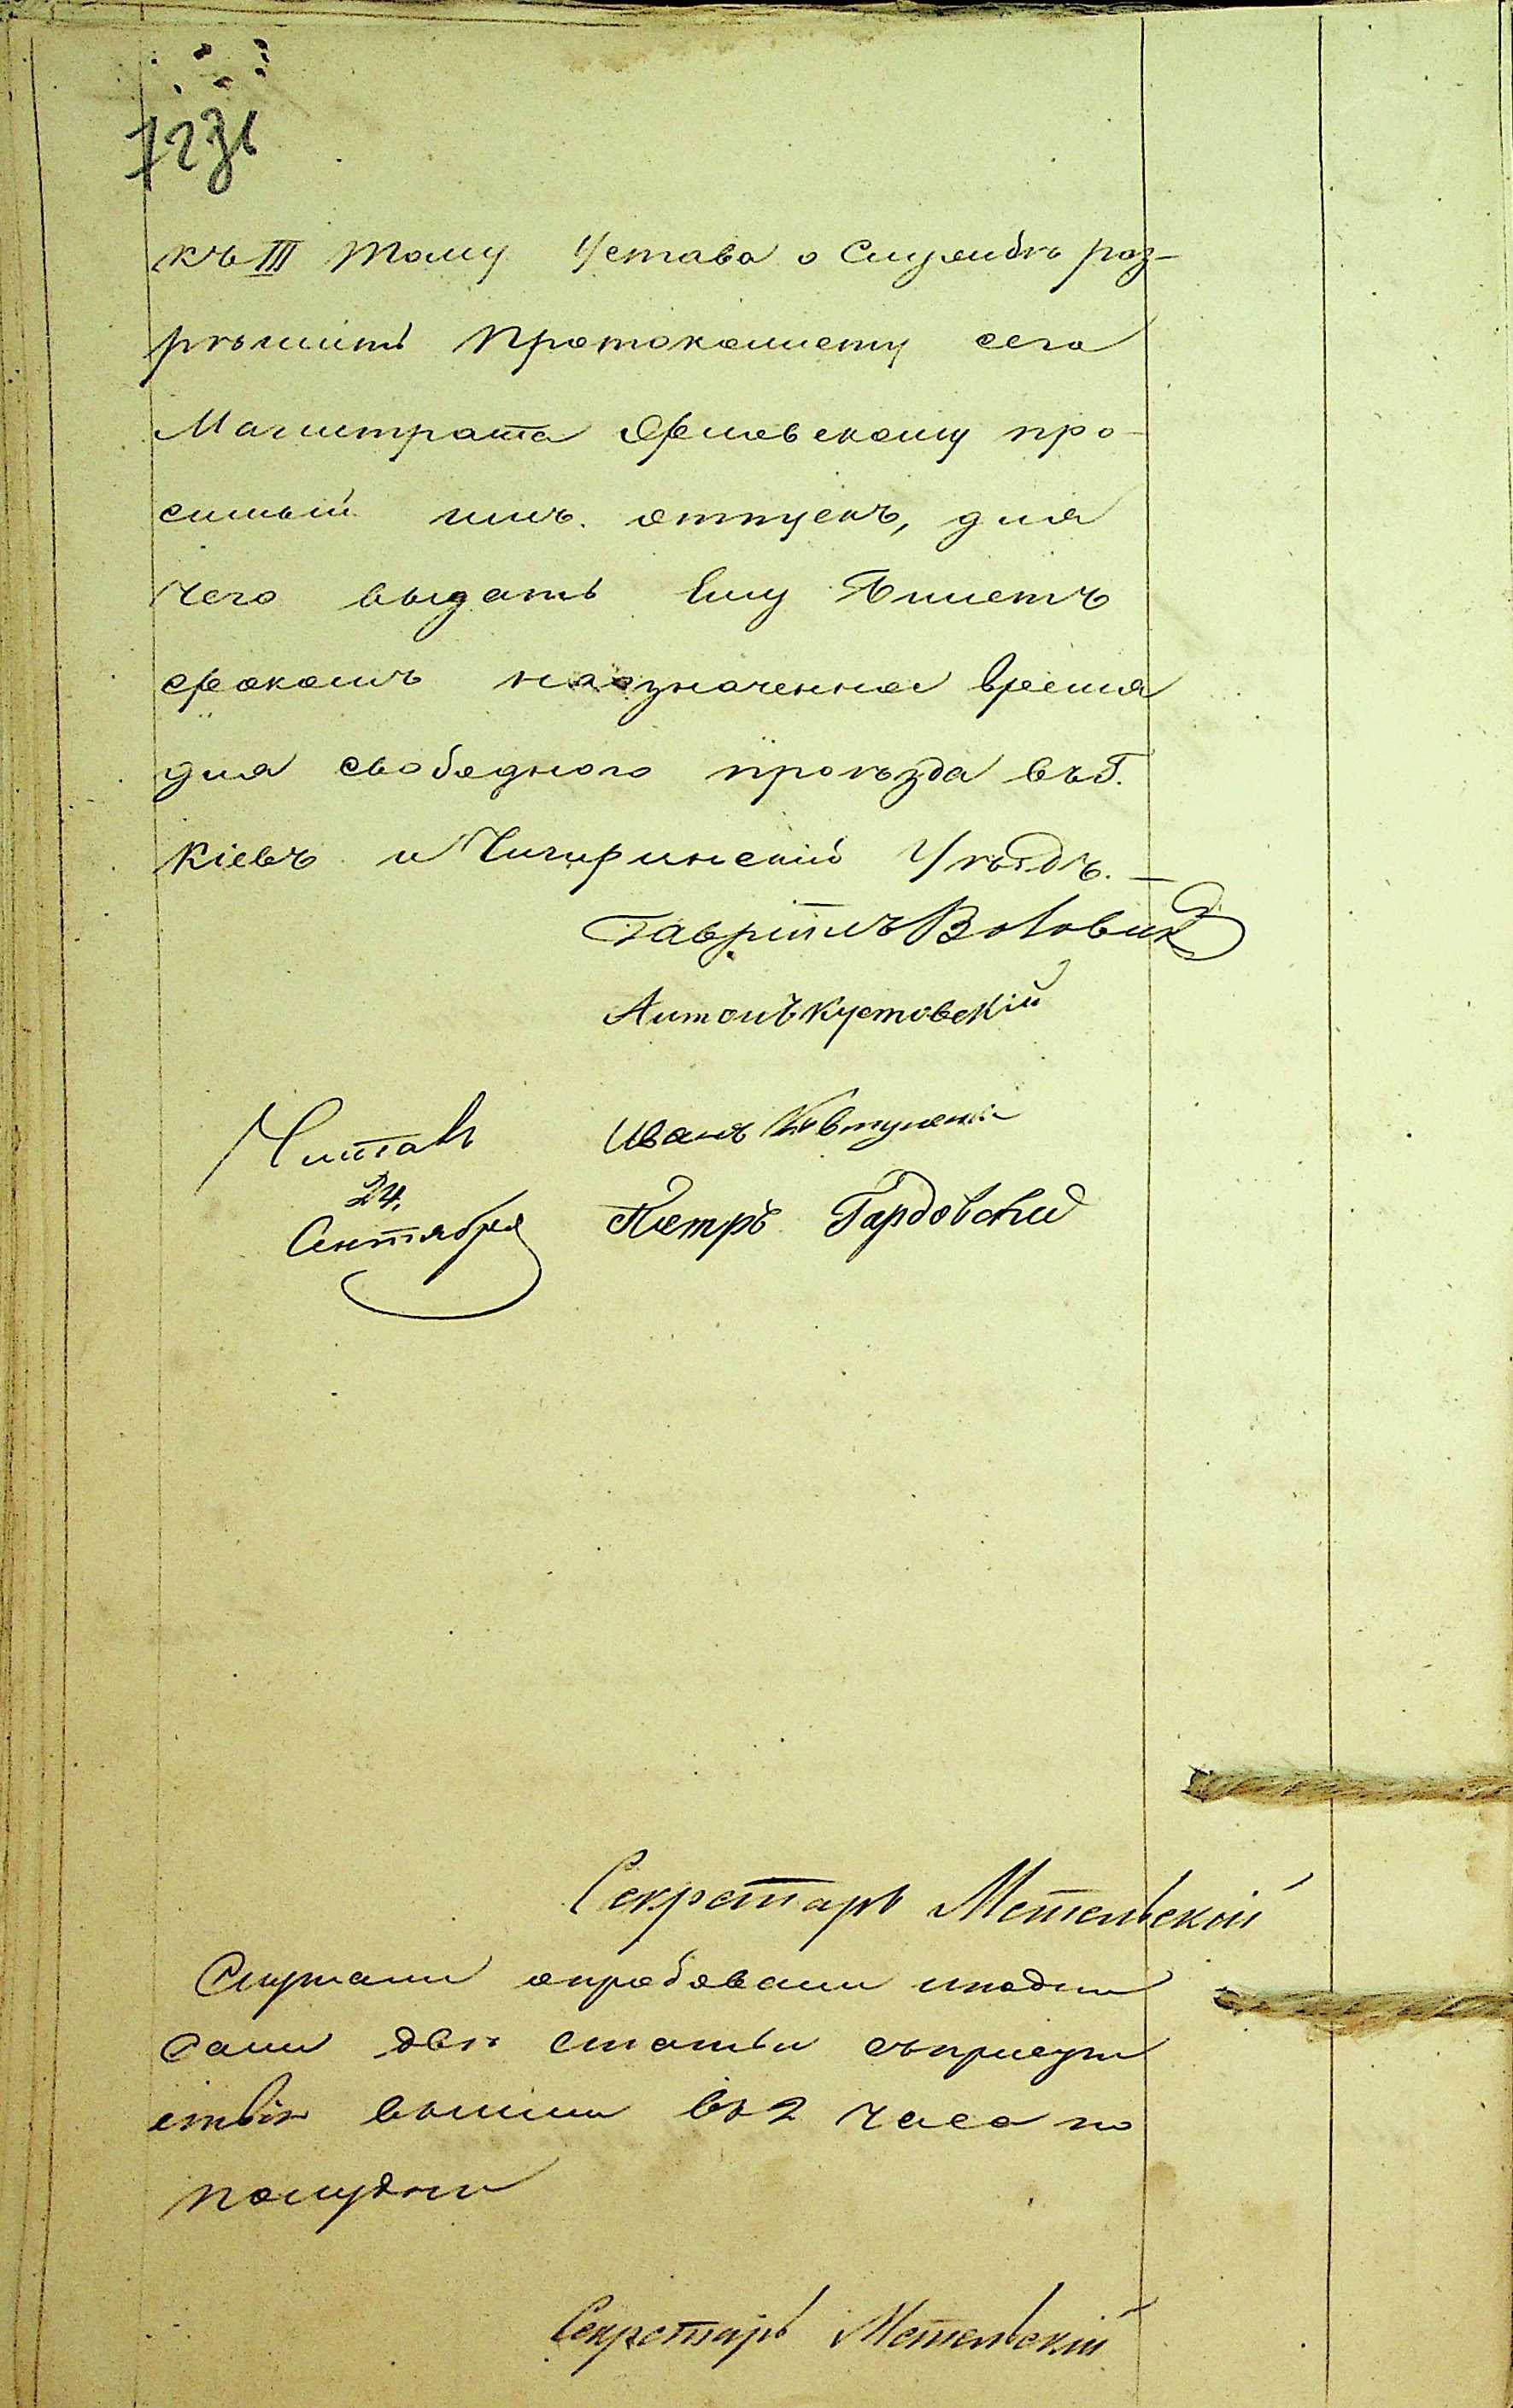 723ь
къ III тому Устава о службѣ раз-
рѣшить Протоколисту сего
Магистрата Орловскому про-
симый имъ отпускъ, для
чего выдать ему Билетъ
срокомъ на означенное время
для свободнаго проѣзда въ Г.
Кіевъ и Чигиринскій Уѣздъ. —
Гавріилъ Воловик
Антонъ Кустовскій
Читалъ Иванъ
24,
Сентября Петръ Гардовский
Секретарь Метельскій
Слушали опробовали и подпи
сали двѣ статьи съ присут
ствія вышли въ 2 часа по
полудни
Секретарь Метельскій